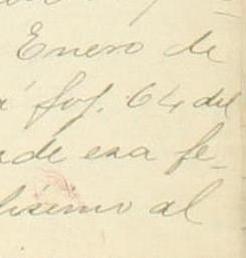 Enero de
á foj. 64 del
de esa fe_
lísimo al